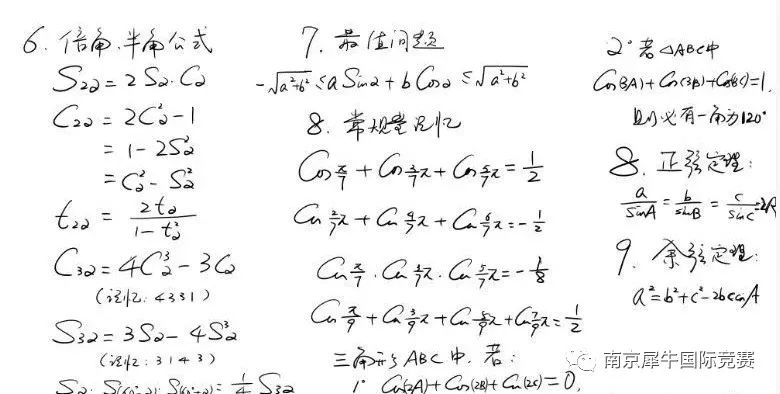 6. 倍角.半角公式
S2α = 2Sα·Cα
C2α = 2Cα² - 1
= 1 - 2Sα²
= Cα² - Sα²
t2α = 2tα / (1 - tα²)
C3α = 4Cα³ - 3Cα
(记忆: 4331)
S3α = 3Sα - 4Sα³
(记忆: 3143)
7. 最值问题
-√a²+b² ≤ a Sinα + b Cosα ≤ √a²+b²
8. 常规量记忆
Cos π/7 + Cos 3/7 π + Cos 5/7 π = 1/2
Cos 2/7 π + Cos 4/7 π + Cos 6/7 π = -1/2
Cos π/7 · Cos 3/7 π · Cos 5/7 π = -1/8
Cos π/9 + Cos 3/9 π + Cos 5/9 π + Cos 7/9 π = 1/2
三角形 ABC 中, 若:
1° Cos(2A) + Cos(2B) + Cos(2C) = 0,
2° 若 △ABC中
Cos(3A) + Cos(3B) + Cos(3C) = 1,
则必有一角为120°
8. 正弦定理:
a/sinA = b/sinB = c/sinC = 2R
9. 余弦定理:
a² = b² + c² - 2bc cosA
南京犀牛国际竞赛